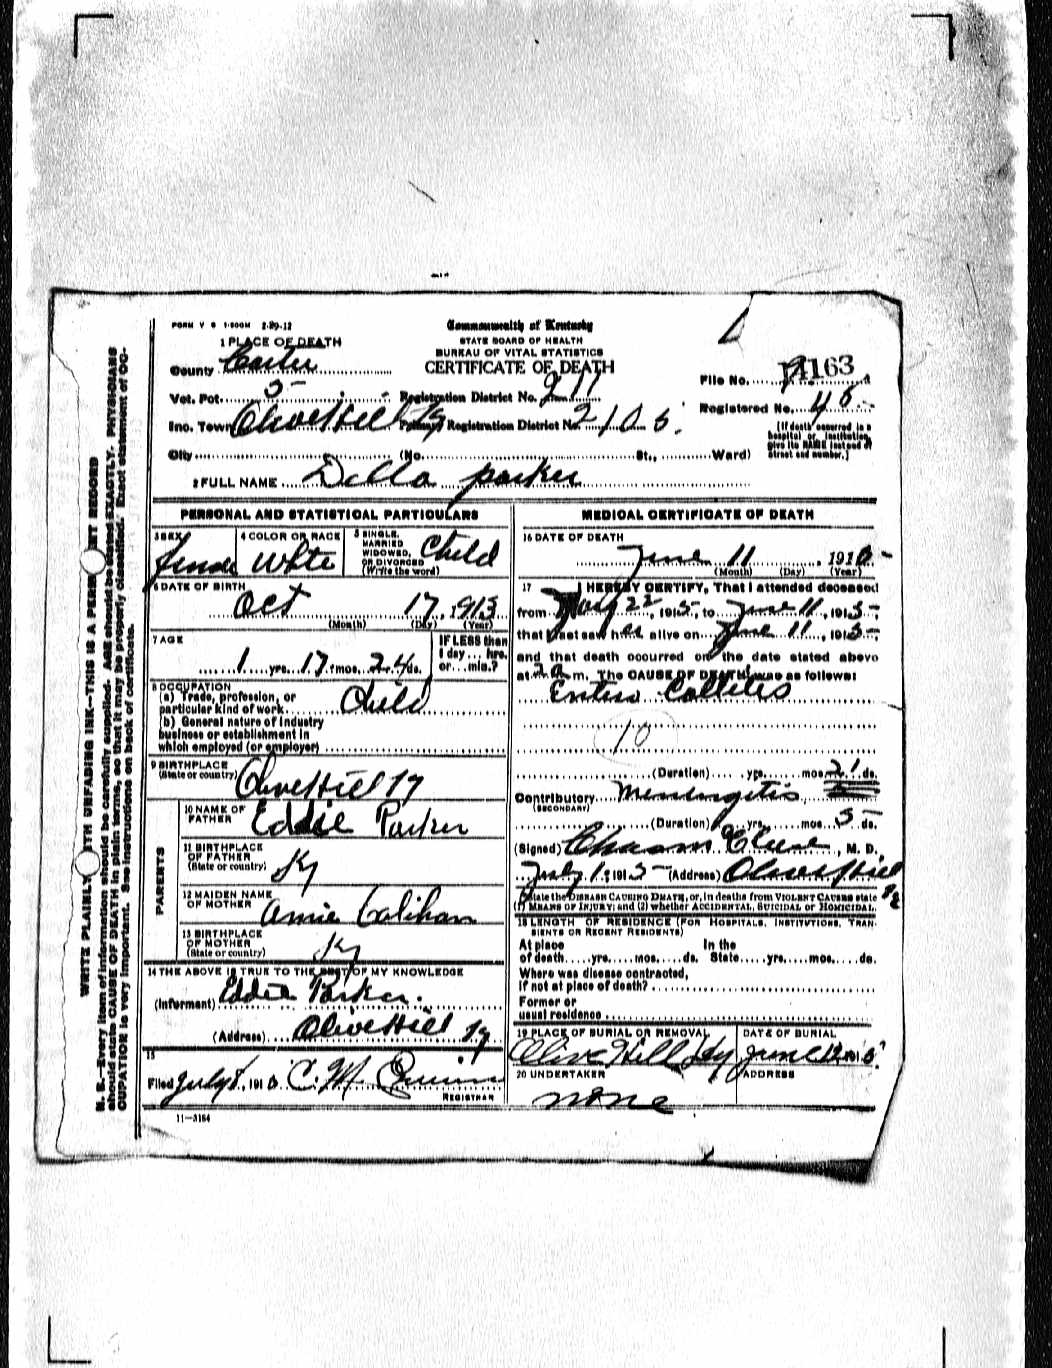 FORM V S 1-500M 2-29-12
Commonwealth of Kentucky
STATE BOARD OF HEALTH
BUREAU OF VITAL STATISTICS
CERTIFICATE OF DEATH
1 PLACE OF DEATH
County Carter
Vot. Pct. 5
Registration District No. 211
Inc. Town Olive Hill Ky
Registration District No. 2105
City (No. St., Ward)
File No. 163
Registered No. 46
[If death occurred in a hospital or institution, give its NAME instead of street and number.]
2 FULL NAME Della Parker
PERSONAL AND STATISTICAL PARTICULARS
3 SEX
Female
4 COLOR OR RACE
White
5 SINGLE, MARRIED WIDOWED, OR DIVORCED (Write the word)
Child
6 DATE OF BIRTH
Oct 17, 1913
(Month) (Day) (Year)
7 AGE
1 yrs. 17 mos. 24 ds.
IF LESS than 1 day... hrs. or... min.?
8 OCCUPATION
(a) Trade, profession, or particular kind of work Child
(b) General nature of industry business or establishment in which employed (or employer)
9 BIRTHPLACE
(State or country) Olive Hill Ky
PARENTS
10 NAME OF FATHER Eddie Parker
11 BIRTHPLACE OF FATHER (State or country) Ky
12 MAIDEN NAME OF MOTHER Amie Calihan
13 BIRTHPLACE OF MOTHER (State or country) Ky
14 THE ABOVE IS TRUE TO THE BEST OF MY KNOWLEDGE
(Informant) Eddie Parker.
(Address) Olive Hill Ky
15
Filed July 1, 191 C. M.
REGISTRAR
11-3184
MEDICAL CERTIFICATE OF DEATH
16 DATE OF DEATH
June 11, 1915
(Month) (Day) (Year)
17 I HEREBY CERTIFY, That I attended deceased
from May 22, 1915, to June 11, 1915,
that I last saw her alive on June 11, 1915,
and that death occurred on the date stated above
at 2 a m. The CAUSE OF DEATH was as follows:
Entero Collites
10
(Duration) yrs. mos. 21 ds.
Contributory Meningetis
(SECONDARY)
(Duration) yrs. mos. 5 ds.
(Signed) , M. D.
July 1, 1915 (Address) Olive Hill Ky
State the DISEASE CAUSING DEATH, or, in deaths from VIOLENT CAUSES state (1) MEANS OF INJURY; and (2) whether ACCIDENTAL, SUICIDAL or HOMICIDAL.
18 LENGTH OF RESIDENCE (FOR HOSPITALS, INSTITUTIONS, TRANSIENTS OR RECENT RESIDENTS)
At place of death yrs. mos. ds. In the State yrs. mos. ds.
Where was disease contracted, if not at place of death?
Former or usual residence
19 PLACE OF BURIAL OR REMOVAL
Olive Hill Ky
DATE OF BURIAL
June 12, 1915
20 UNDERTAKER
none
ADDRESS
WRITE PLAINLY WITH UNFADING INK—THIS IS A PERMANENT RECORD
N. B.—Every item of information should be carefully supplied. AGE should be stated EXACTLY. PHYSICIANS
should state CAUSE OF DEATH in plain terms, so that it may be properly classified. Exact statement of OC-
CUPATION is very important. See instructions on back of certificate.